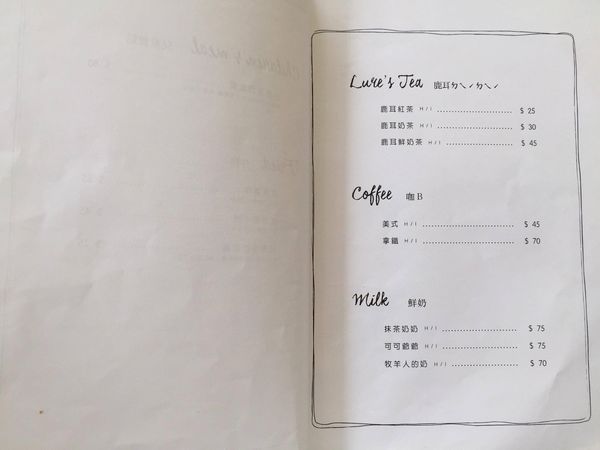 Lure's Tea 鹿耳ㄉㄟˊㄉㄟˊ
鹿耳紅茶 H / I ........................ $ 25
鹿耳奶茶 H / I ........................ $ 30
鹿耳鮮奶茶 H / I ........................ $ 45
Coffee 咖B
美式 H / I ........................ $ 45
拿鐵 H / I ........................ $ 70
Milk 鮮奶
抹茶奶奶 H / I ........................ $ 75
可可爺爺 H / I ........................ $ 75
牧羊人的奶 H / I ........................ $ 70